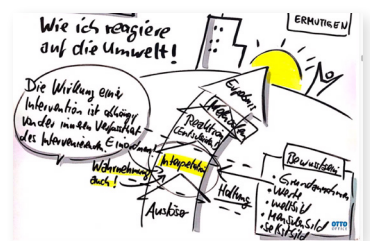 Wie ich reagiere
auf die Umwelt!
ERMUTIGEN
Die Wirkung einer
Intervention ist abhängig
von der inneren Verfasstheit
des Intervenierenden.
Ergebnis
Reaktion
(Entscheidung)
Interpretation
Wahrnehmung
auch!
Auslöser
Haltung
Bewusstsein
• Grundannahmen
• Werte
• Weltbild
• Menschenbild
• Selbstbild
OTTO